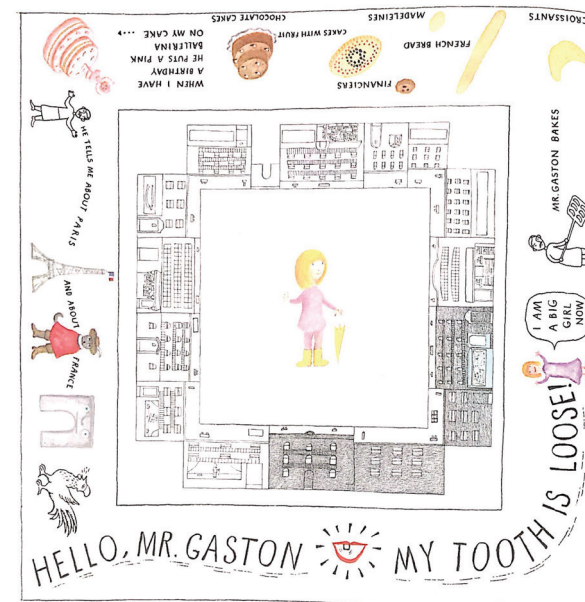 HELLO, MR. GASTON
MY TOOTH IS LOOSE!
I AM
A BIG
GIRL
NOW
MR. GASTON BAKES
CROISSANTS
FRENCH BREAD
MADELEINES
FINANCIERS
CAKES WITH FRUIT
CHOCOLATE CAKES
WHEN I HAVE
A BIRTHDAY
HE PUTS A PINK
BALLERINA
ON MY CAKE
HE TELLS ME ABOUT PARIS
AND ABOUT
FRANCE